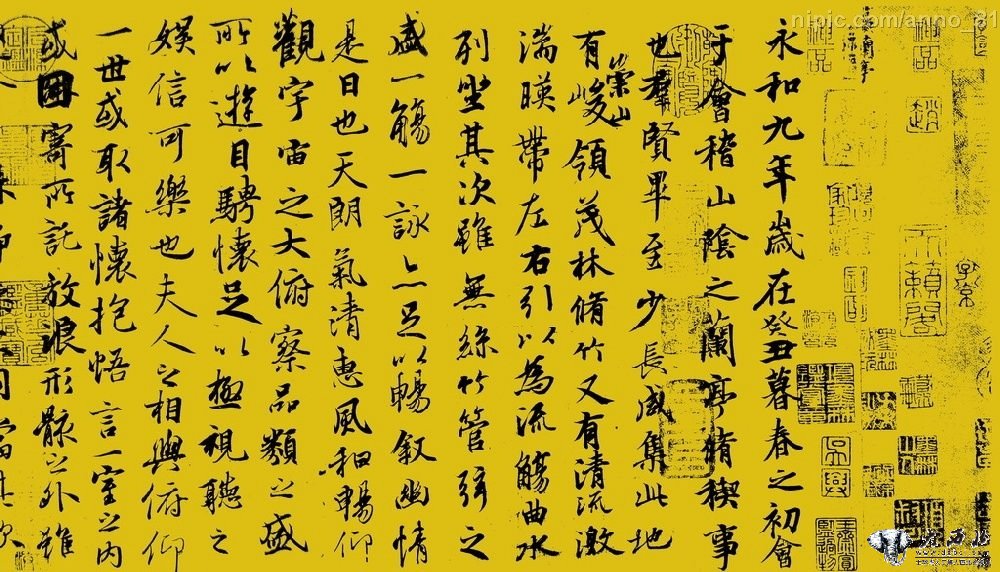 nipic.com/anno_81
永和九年歲在癸丑暮春之初會
于會稽山陰之蘭亭脩稧事
也羣賢畢至少長咸集此地
有崇山峻領茂林脩竹又有清流激
湍暎帶左右引以為流觴曲水
列坐其次雖無絲竹管弦之
盛一觴一詠亦足以暢叙幽情
是日也天朗氣清惠風和暢仰
觀宇宙之大俯察品類之盛
所以遊目騁懷足以極視聽之
娛信可樂也夫人之相與俯仰
一世或取諸懷抱悟言一室之內
或因寄所託放浪形骸之外雖
天籟閣